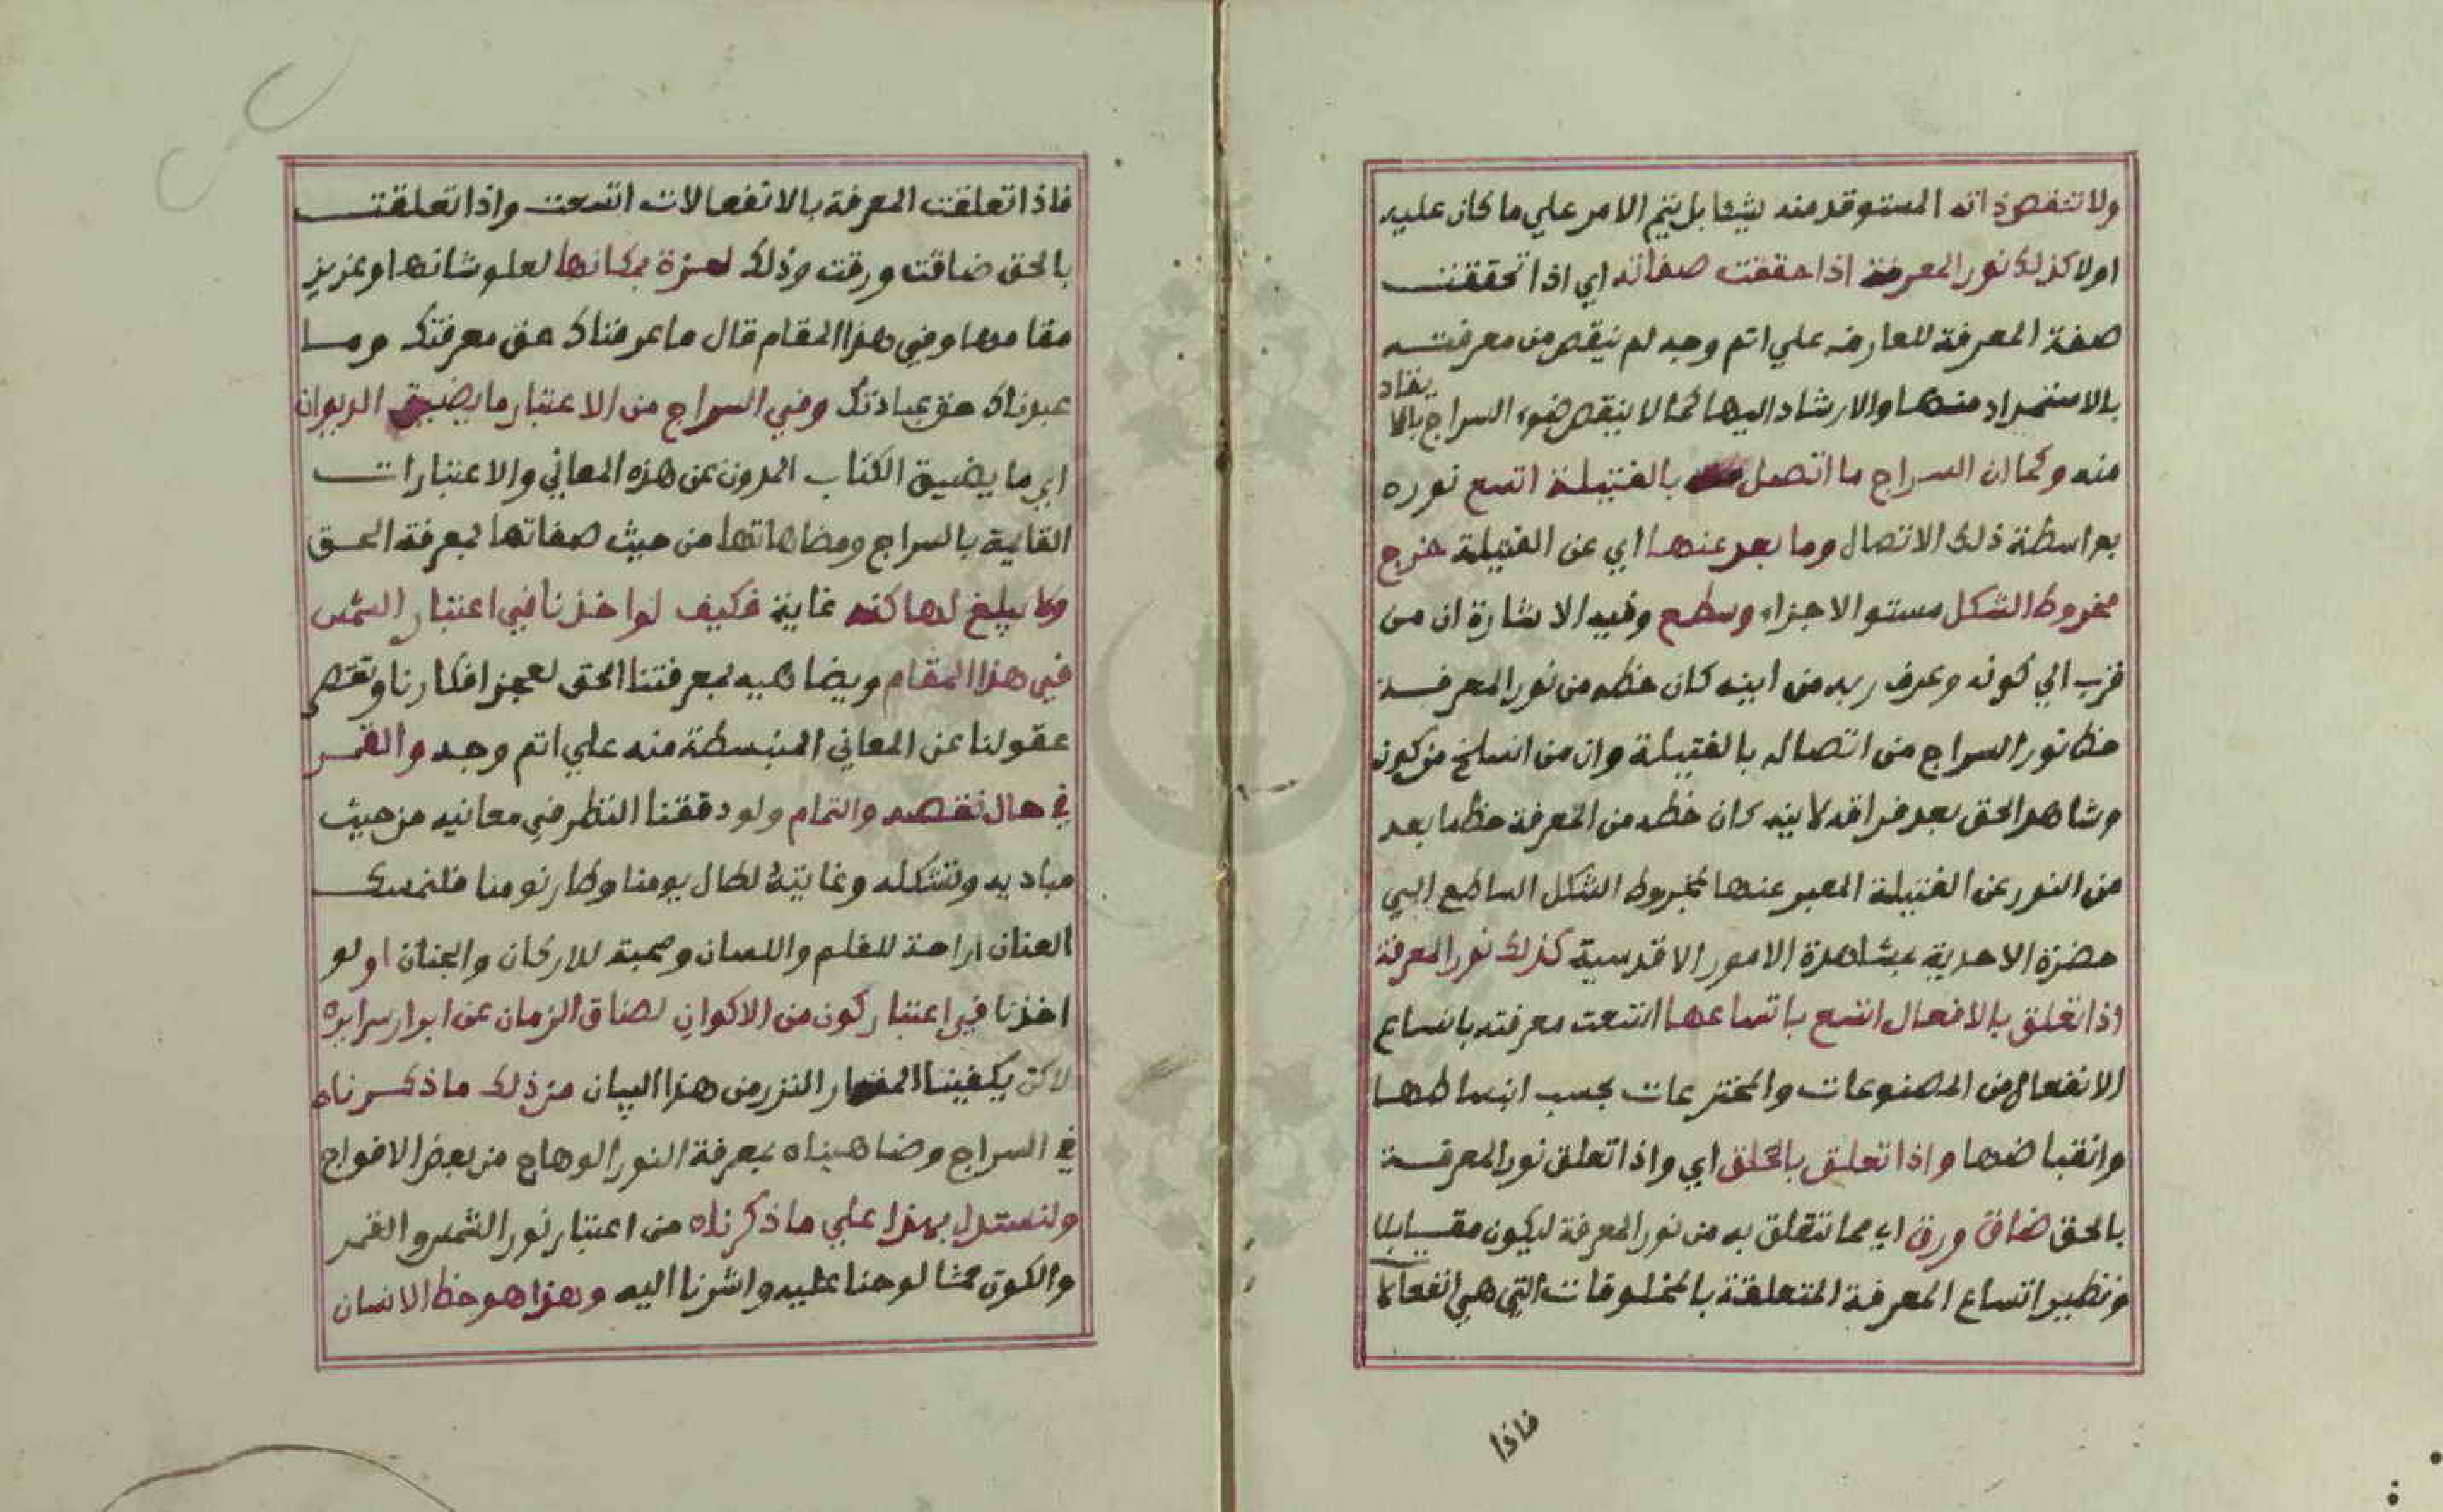 ولا تنقص ذاته المستوقد منه شيئا بل يتم الامر علي ما كان عليه
اولا كذلك نور المعرفة اذا حققت صفاته اي اذا تحققت
صفة المعرفة للعارف علي اتم وجه لم ينقص من معرفته
بالاستمداد منها والارشاد اليها كما لا ينقص ضوء السراج بالا
يقاد
منه وكما ان السراج ما اتصل بالفتيلة اتسع نوره
بواسطة ذلك الاتصال وما بعد عنها اي عن الفتيلة خرج
مخروط الشكل مستو الاجزاء وسطع وفيه الاشارة ان من
قرب الي كونه وعرف ربه من ابينه كان حظه من نور المعرفة
حظ نور السراج من اتصاله بالفتيلة وان من انسلخ من كونه
وشاهد الحق بعد فراقه لاينه كان حظه من المعرفة حظ ما بعد
من النور عن الفتيلة المعبر عنها بمخروط الشكل الساطع الي
حضرة الاحدية بمشاهدة الامور الاقدسية كذلك نور المعرفة
اذا تعلق بالافعال اتسع باتساعها اتسعت معرفته باتساع
الانفعال من المصنوعات والمخترعات بحسب انبساطها
وانقباضها واذا تعلق بالحق اي واذا تعلق نور المعرفة
بالحق ضاق ورق اي مما تتعلق به من نور المعرفة ليكون مقابلا
ونظير اتساع المعرفة المتعلقة بالمخلوقات التي هي انفعالا
فاذا
فاذا تعلقت المعرفة بالانفعالات اتسعت واذا تعلقت
بالحق ضاقت ورقت وذلك لعزة مكانها لعلو شانها وعزيز
مقامها وفي هذا المقام قال ما عرفناك حق معرفتك وما
عبدناك حق عبادتك وفي السراج من الاعتبار ما يضيق الديوان
اي ما يضيق الكتاب المدون عن هذه المعاني والاعتبارات
القايمة بالسراج ومضاهاتها من حيث صفاتها لمعرفة الحق
ولا يبلغ لها كنه غاية فكيف لو اخذنا في اعتبار الشمس
في هذا المقام ويضاهيه لمعرفتنا الحق لعجز افكارنا ونقص
عقولنا عن المعاني المنبسطة منه علي اتم وجه والقمر
في حال نقصه والتمام ولو دققنا النظر في معانيه من حيث
مباديه وتشكله وغايته لطال يومنا وطار نومنا فلنمسك
العنان اراحة للقلم واللسان وصحبة للاركان والجنان او لو
اخذنا في اعتبار كون من الاكوان لضاق الزمان عن ابراز سرايره
لاكن يكفينا المقدار النزر من هذا البيان من ذلك ما ذكرناه
في السراج وضاهيناه بمعرفة النور الوهاج من بعض الافواج
ولنستدل بهذا علي ما ذكرناه من اعتبار نور الشمس والقمر
والكون مما لوحنا عليه واشرنا اليه وهذا هو حظ الانسان